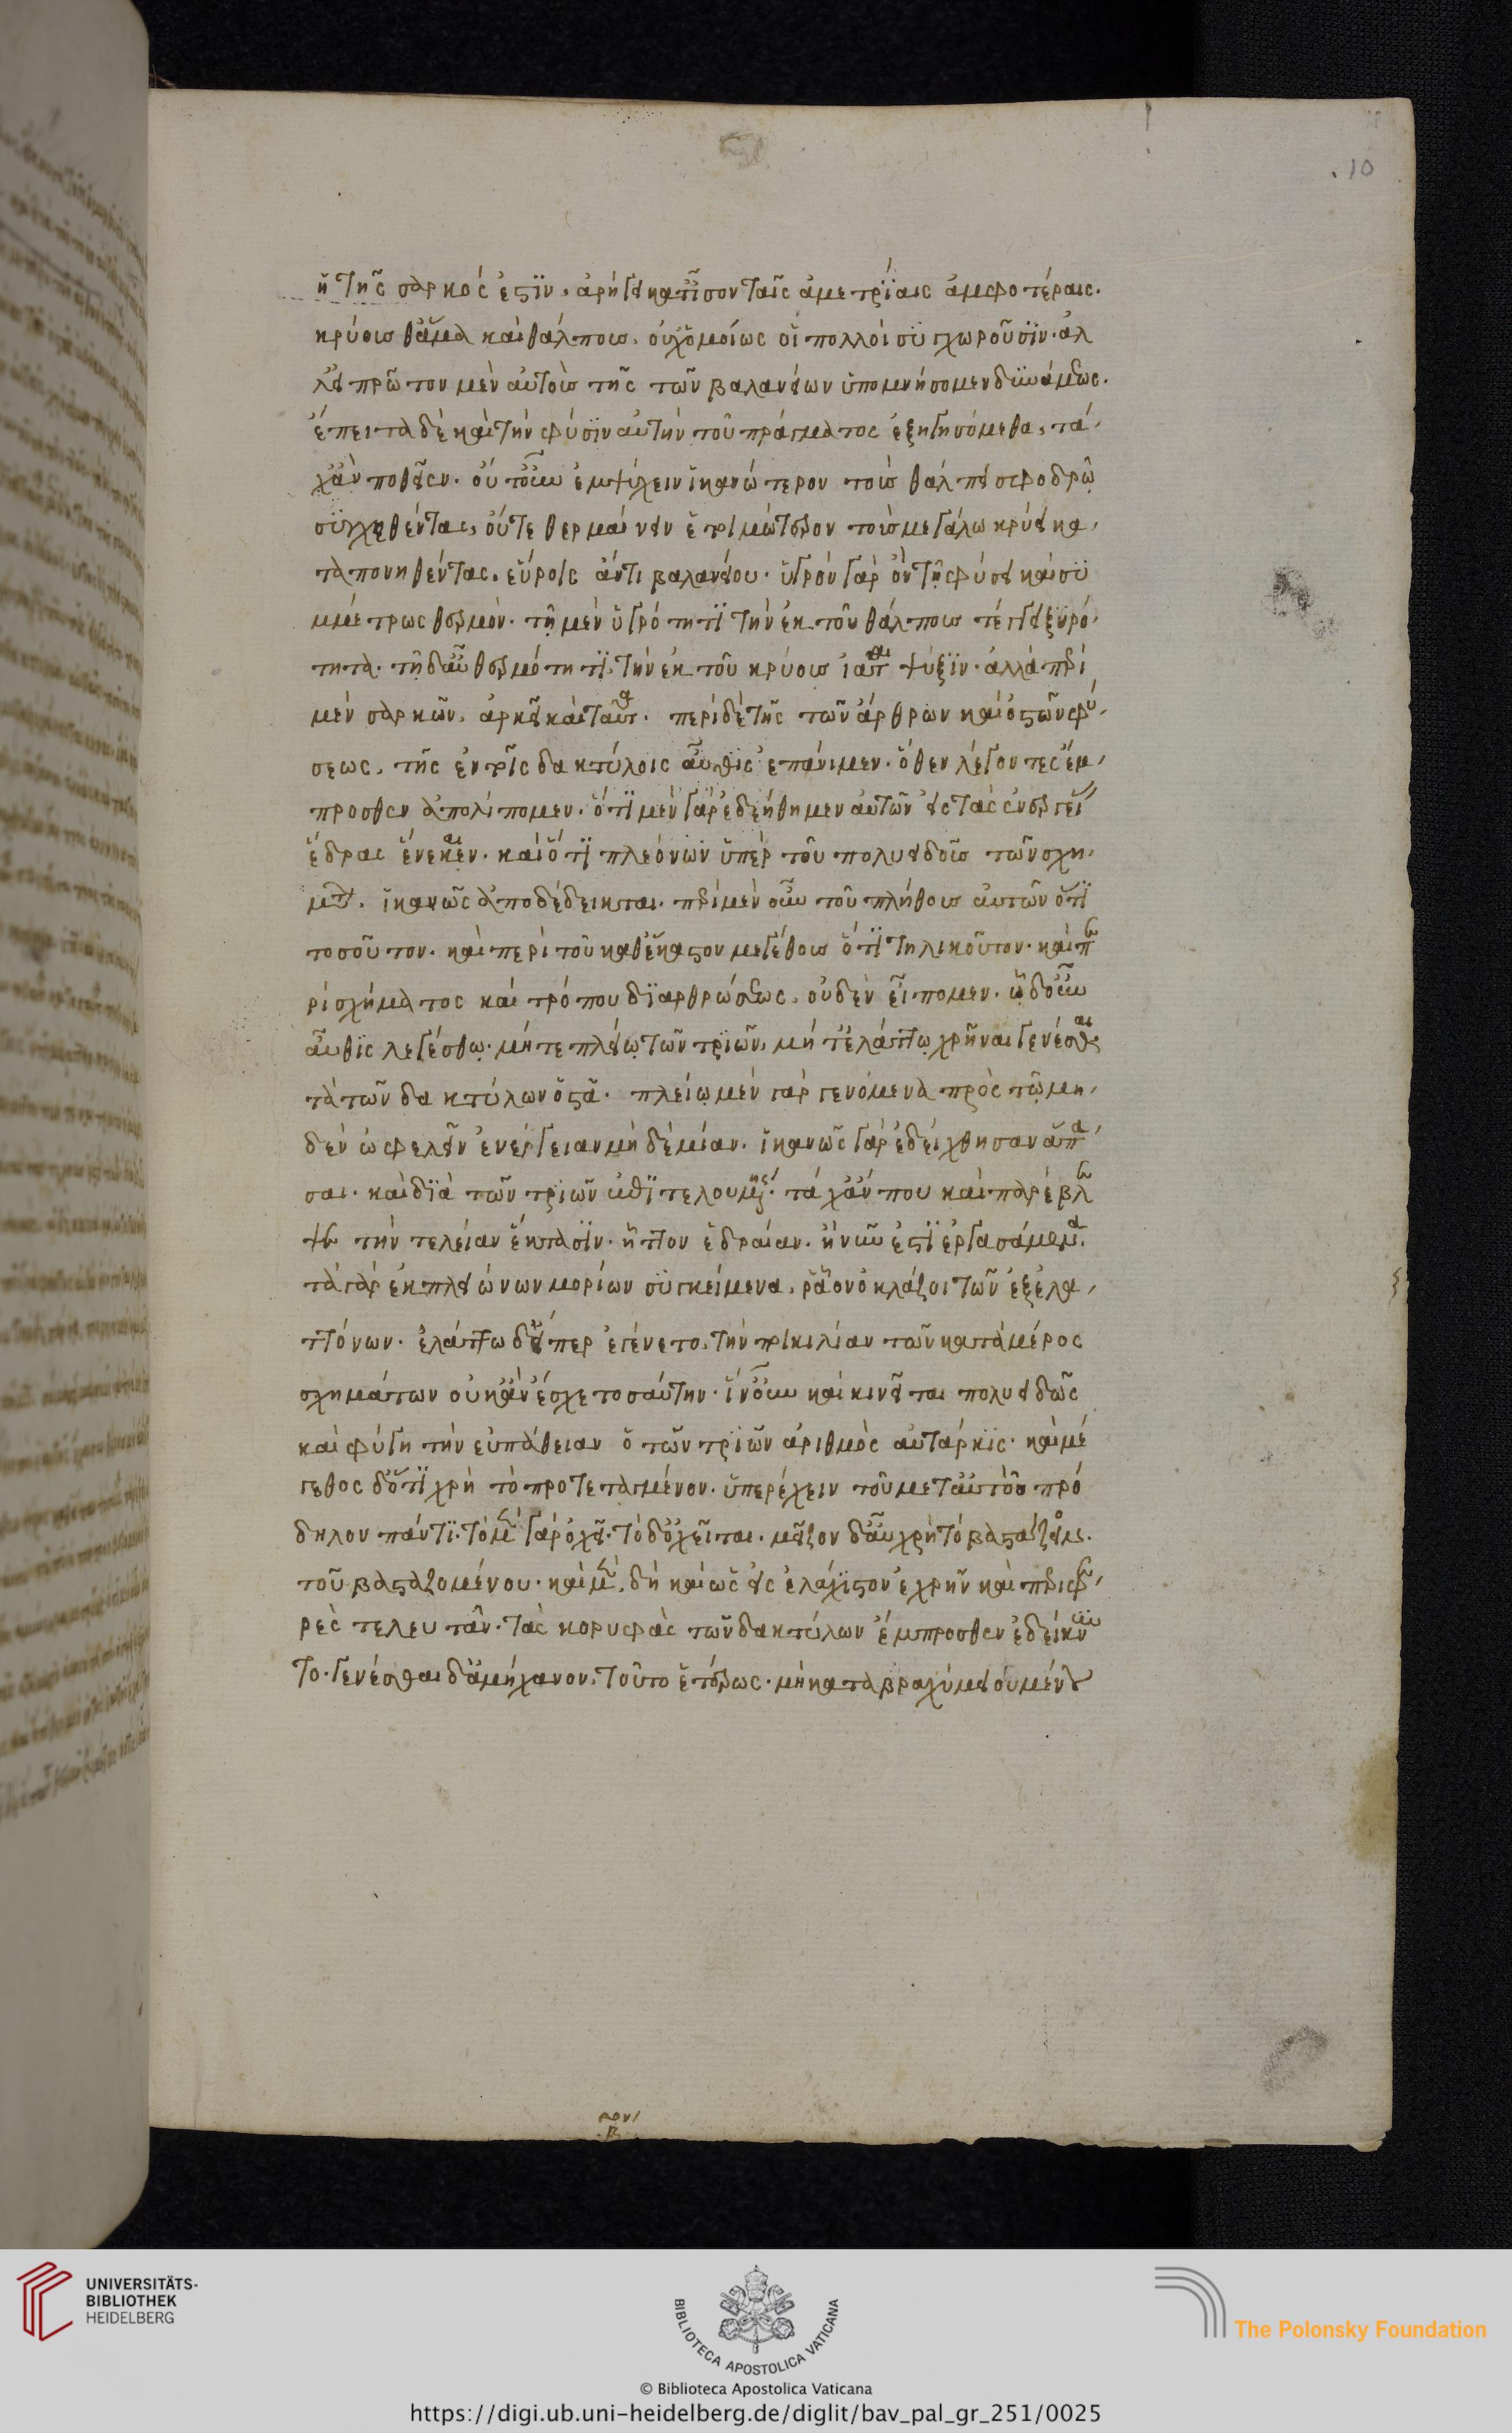 ἡ τῆς σαρκός ἐστϊν, ἀρήγειν κατῖσον ταῖς ἀμετρίαις ἀμφοτέραις.
κρύους θἅμα καὶ θάλπους, οὐχὁμοίως οἱ πολλοὶ συγχωροῦσϊν. ἀλ
λεἰ πρῶτον μὲν αὐτοὺς τῆς τῶν βαλανείων ὑπομνήσομεν δυνάμεως.
ἔπειτα δὲ καὶ τὴν φύσϊν αὐτὴν τοῦ πράγματος ἐξηγησόμεθα, τά
χἂν ποθεῖεν. οὔτοὖν ἐμψύχειν ἱκανώτερον τοὺς θάλπει σφοδρῷ
συγχυθέντας, οὔτε θερμαίνειν ἑτοιμώτερον τοὺς μεγάλω κρύει κα
ταπονηθέντας, εὕροις ἄντι βαλανείου. ὑγρὸν γὰρ ὂν τῇ φύσει καὶ συ
μμέτρως θερμὸν. τῇ μὲν ὑγρότητϊ τὴν ἐκ τοῦ θάλπους τέγγει ξηρό
τητα. τῇ δαὖ θερμότητϊ, τὴν ἐκ τοῦ κρύους ἰᾶται ψύξϊν. ἀλλὰ περὶ
μὲν σαρκῶν, ἀρκεῖ καὶ ταῦτα. περὶ δὲ τῆς τῶν ἄρθρων καὶ ὀστῶν φύ
σεως, τῆς ἐν τοῖς δακτύλοις αὖθϊς ἐπάνιμεν. ὅθεν λέγοντες ἔμ
προσθεν ἀπολίπομεν. ὅτϊ μὲν γὰρ ἐδεήθημεν αὐτῶν εἰς τὰς ἐνεργεί
ἕδρας ἕνεκεν. καὶ ὅτϊ πλεόνων ὑπὲρ τοῦ πολυειδοῦς τῶν σχη
μάτων, ἱκανῶς ἀποδέδεικται. περὶ μὲν οὖν τοῦ πλήθους αὐτῶν ὅτϊ
τοσοῦτον. καὶ περὶ τοῦ καθἕκαστον μεγέθους ὅτϊ τηλικοῦτον. καὶ πε
ρὶ σχήματος καὶ τρόπου δϊαρθρώσεως, οὐδὲν εἴπομεν. ὧδοὖν
αὖθϊς λεγέσθω. μήτε πλείω τῶν τριῶν, μήτἐλάττω χρῆναι γενέσθαι
τὰ τῶν δακτύλων ὀστᾶ. πλείω μὲν γὰρ γενόμενα πρὸς τῷ μη
δὲν ὠφελεῖν ἐνέργειαν μηδὲ μίαν. ἱκανῶς γὰρ ἐδείχθησαν ἅπα
σαι. καὶ δϊὰ τῶν τριῶν ἐπιτελουμέναι. τάχἂν που καὶ παρέβλα
ψε τὴν τελείαν ἔκτασϊν. ἧττον ἑδραίαν. ἢ νῦν ἐστϊ ἐργασάμενα.
τὰ γὰρ ἐκ πλειώνων μορίων συγκείμενα, ῥᾷον ὀκλάζοι τῶν ἐξ ἐλα
ττόνων. ἐλάττω δεἴπερ ἐγένετο, τὴν ποικιλίαν τῶν κατὰ μέρος
σχημάτων οὐκἂν ἔσχε τοσαύτην. ἵνοὖν καὶ κινεῖται πολυειδῶς
καὶ φύγη τὴν εὐπάθειαν ὁ τῶν τριῶν ἀριθμὸς αὐτάρκϊς. καὶ μέ
γεθος δὅτϊ χρὴ τὸ προτεταγμένον. ὑπερέχειν τοῦ μεταὐτὸ πρό
δηλον πάντϊ. τὸ μὲν γὰρ ὀχεῖ. τὸ δὀχεῖται. μεῖζον δαὖ χρὴ τὸ βαστάζειν με.
τοῦ βασταζομένου. καὶ μὲν δὴ καὶ ὡς εἰς ἐλάχϊστον ἐχρῆν καὶ περιφε
ρὲς τελευτᾶν. τὰς κορυφὰς τῶν δακτύλων ἔμπροσθεν ἐδείκνυ
το. γενέσθαι δἀμήχανον, τοῦτο ἑτέρως. μὴ κατὰ βραχὺ μειουμένων
10
UNIVERSITÄTS-
BIBLIOTHEK
HEIDELBERG
BIBLIOTECA APOSTOLICA VATICANA
The Polonsky Foundation
© Biblioteca Apostolica Vaticana
https://digi.ub.uni-heidelberg.de/diglit/bav_pal_gr_251/0025